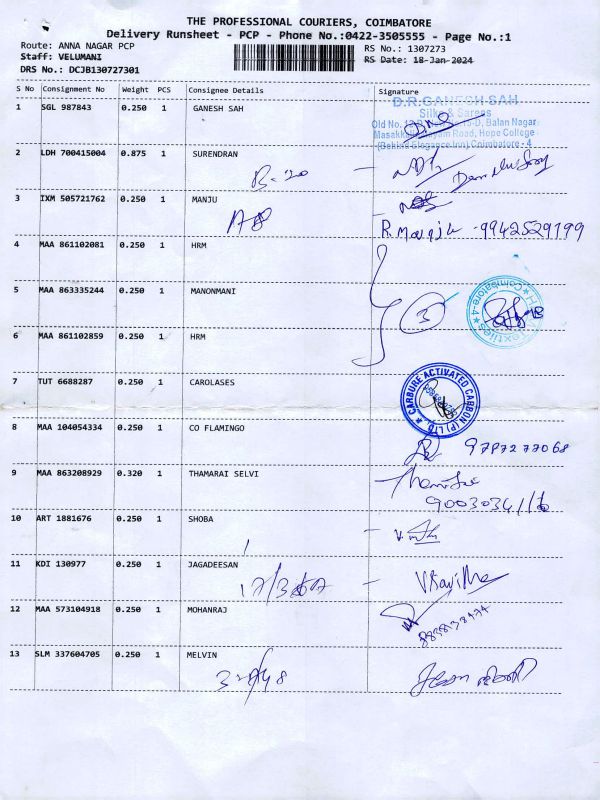 THE PROFESSIONAL COURIERS, COIMBATORE
Delivery Runsheet - PCP - Phone No.:0422-3505555 - Page No.:1
Route: ANNA NAGAR PCP
RS No.: 1307273
Staff: VELUMANI
RS Date: 18-Jan-2024
DRS No.: DCJB130727301
S No Consignment No Weight PCS Consignee Details Signature
1 SGL 987843 0.250 1 GANESH SAH
D.R.GANESH SAH
Silks & Sarees
Balan Nagar
Road, Hope College
(Behind Elegance Inn) Coimbatore - 4
2 LDH 700415004 0.875 1 SURENDRAN
3 IXM 505721762 0.250 1 MANJU
R. Manju - 9942529199
4 MAA 861102081 0.250 1 HRM
5 MAA 863335244 0.250 1 MANONMANI
3
Coimbatore-4
6 MAA 861102859 0.250 1 HRM
7 TUT 6688287 0.250 1 CAROLASES
CARBURE ACTIVATED CARBON (P) LTD.
8 MAA 104054334 0.250 1 CO FLAMINGO
9787277068
9 MAA 863208929 0.320 1 THAMARAI SELVI
10 ART 1881676 0.250 1 SHOBA
11 KDI 130977 0.250 1 JAGADEESAN
12 MAA 573104918 0.250 1 MOHANRAJ
13 SLM 337604705 0.250 1 MELVIN